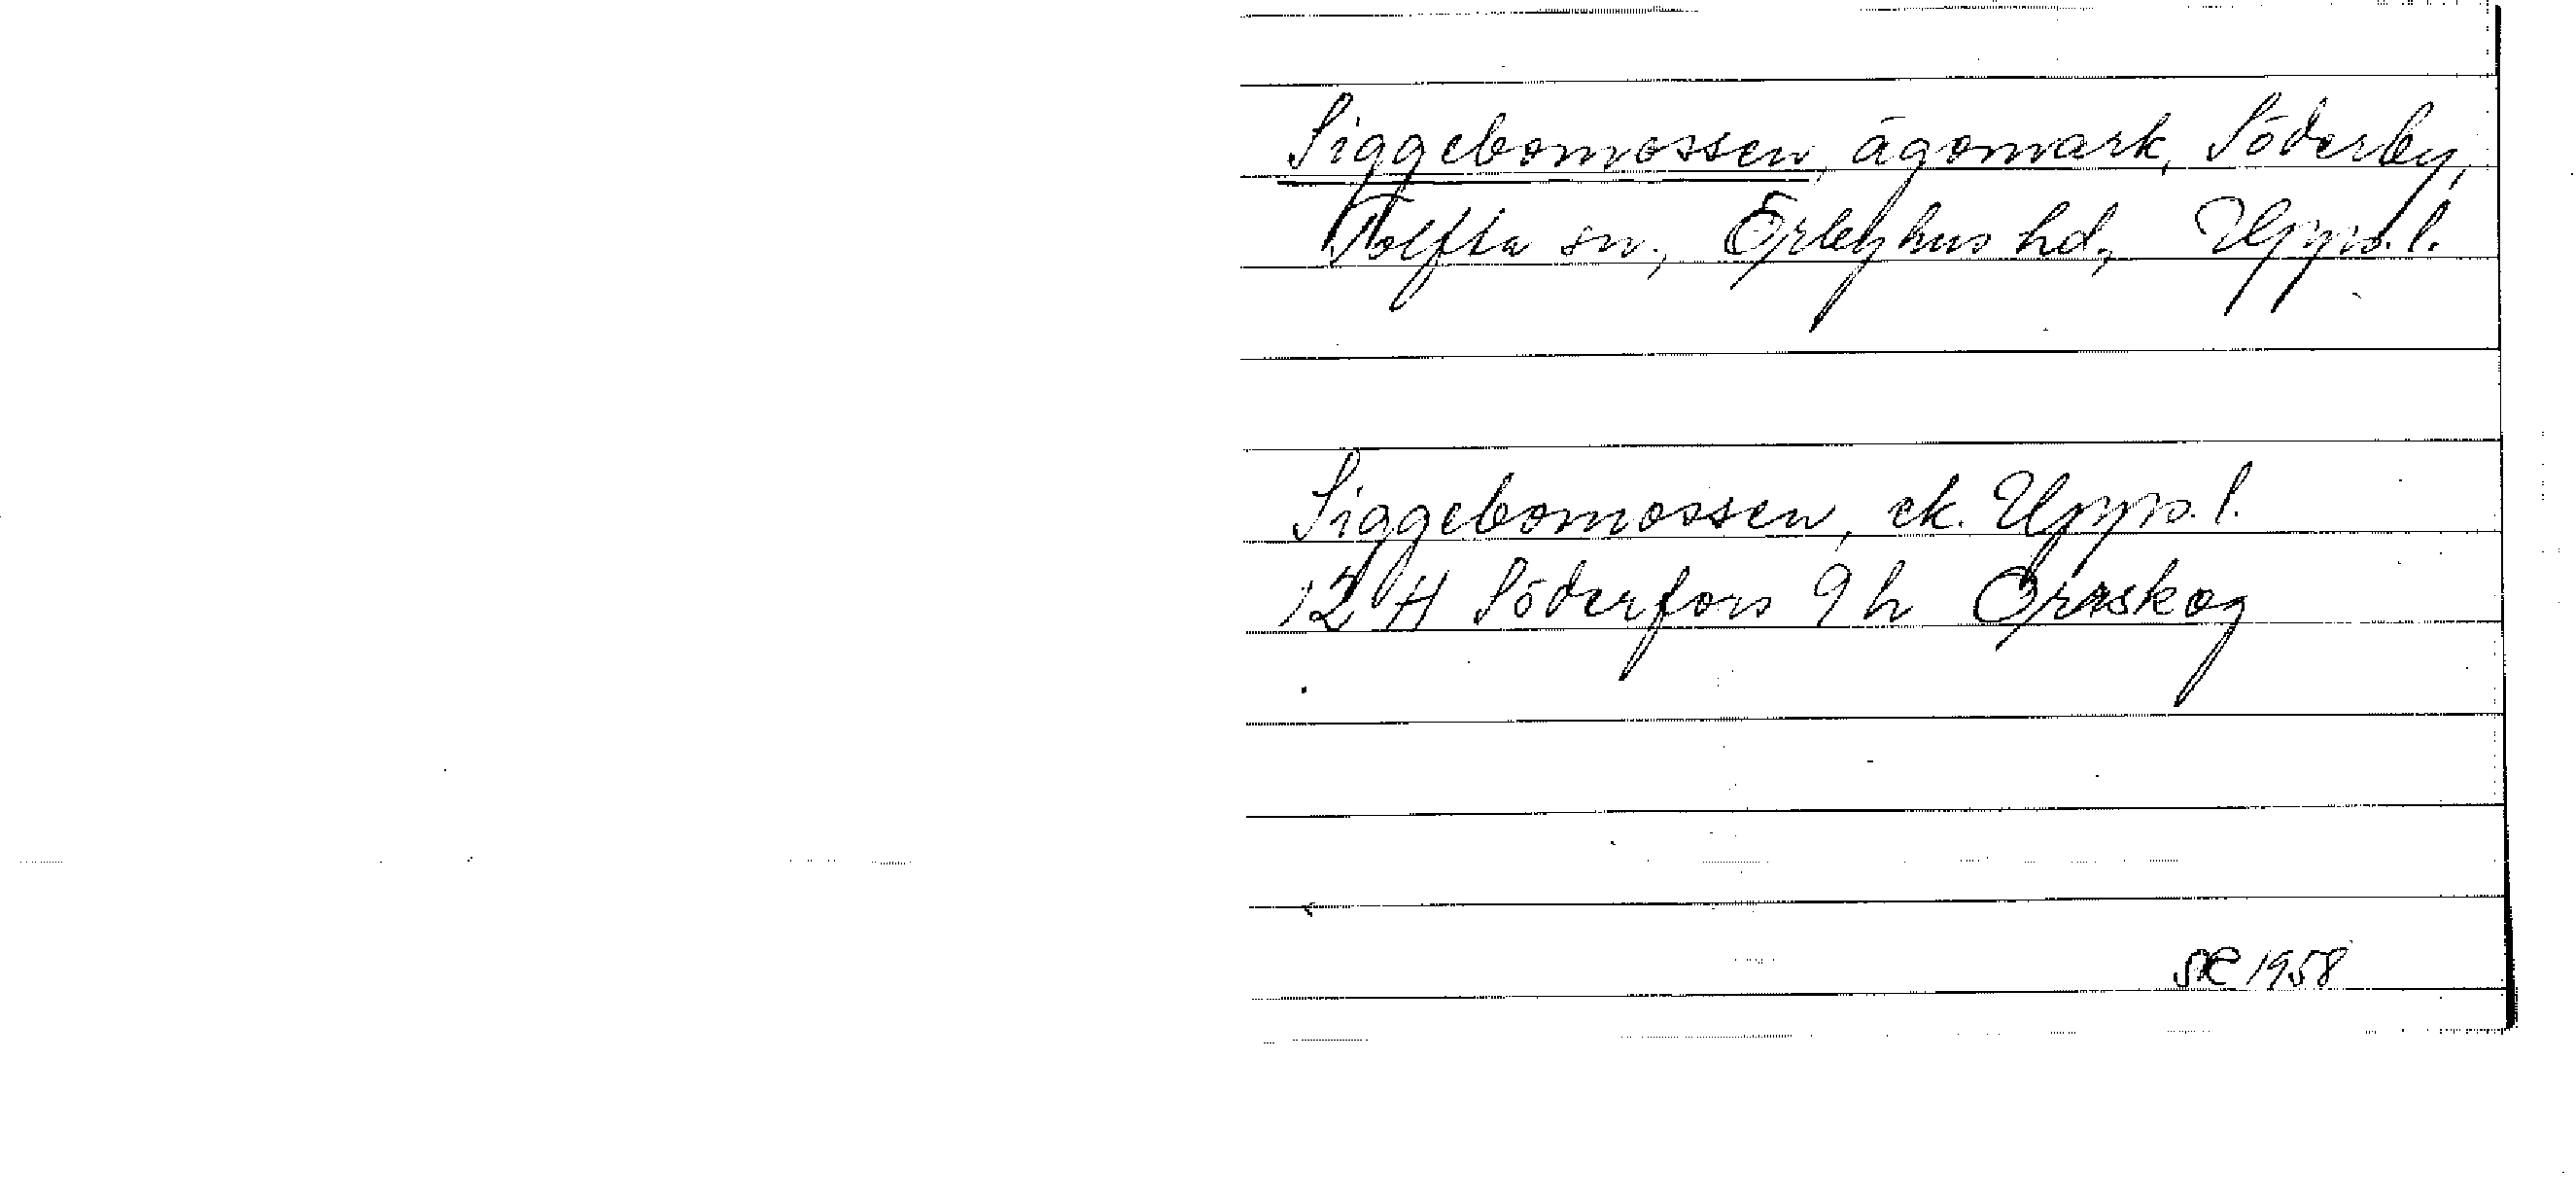 Siggebomossen, ägomark, Söderby,
Tolfta sn., Örbyhus hd, Upps.l.
Siggebomossen, ek. Upps.l.
12 H Söderfors 9 h Örnskog
SR 1958